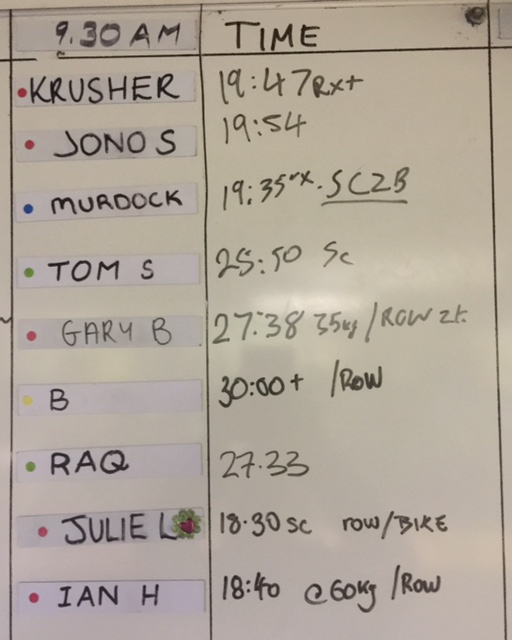 9.30 AM TIME
KRUSHER 19:47 Rx+
JONO S 19:54
MURDOCK 19:35 rx. SC2B
TOM S 25:50 Sc
GARY B 27:38 35kg /ROW 2k
B 30:00+ /ROW
RAQ 27.33
JULIE L 18.30 sc row/BIKE
IAN H 18:40 @60kg /Row